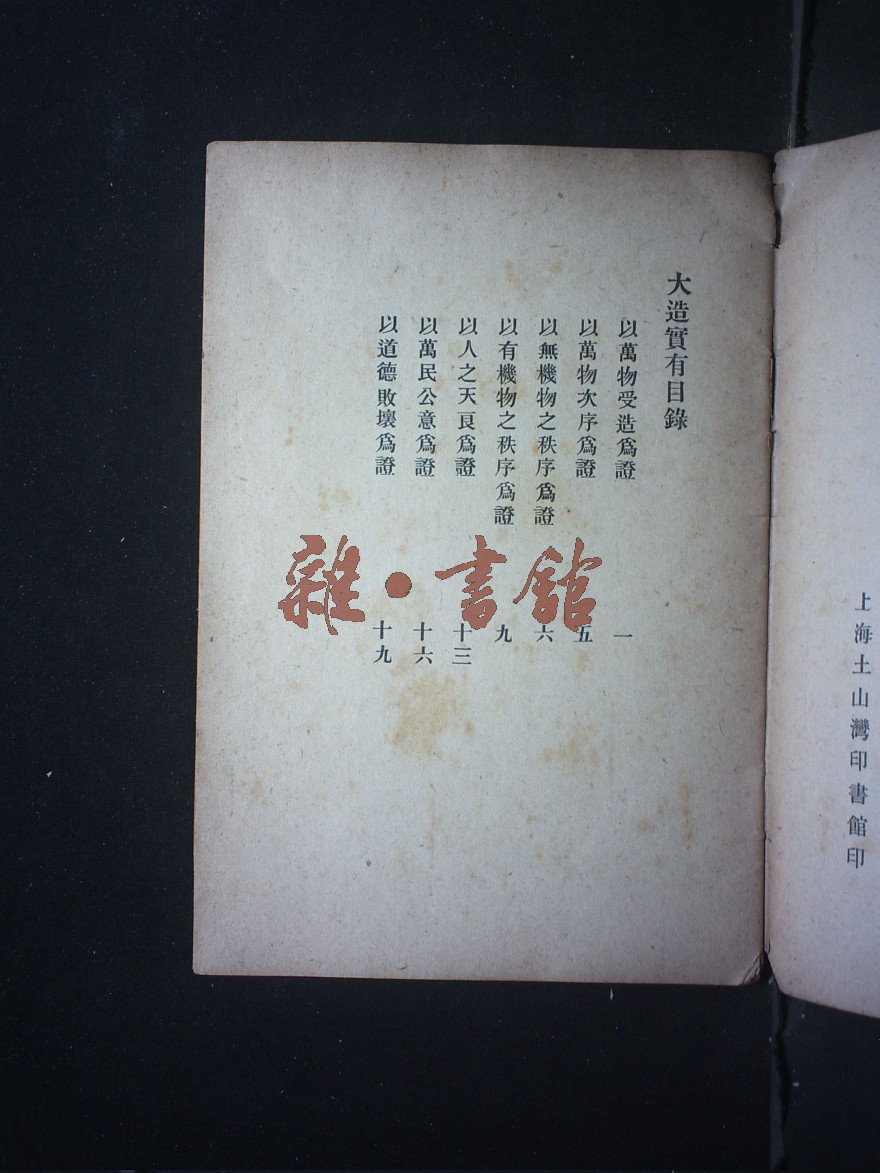 上海土山灣印書館印
大造實有目錄
以萬物受造爲證 一
以萬物次序爲證 五
以無機物之秩序爲證 六
以有機物之秩序爲證 九
以人之天良爲證 十三
以萬民公意爲證 十六
以道德敗壞爲證 十九
雜•書館